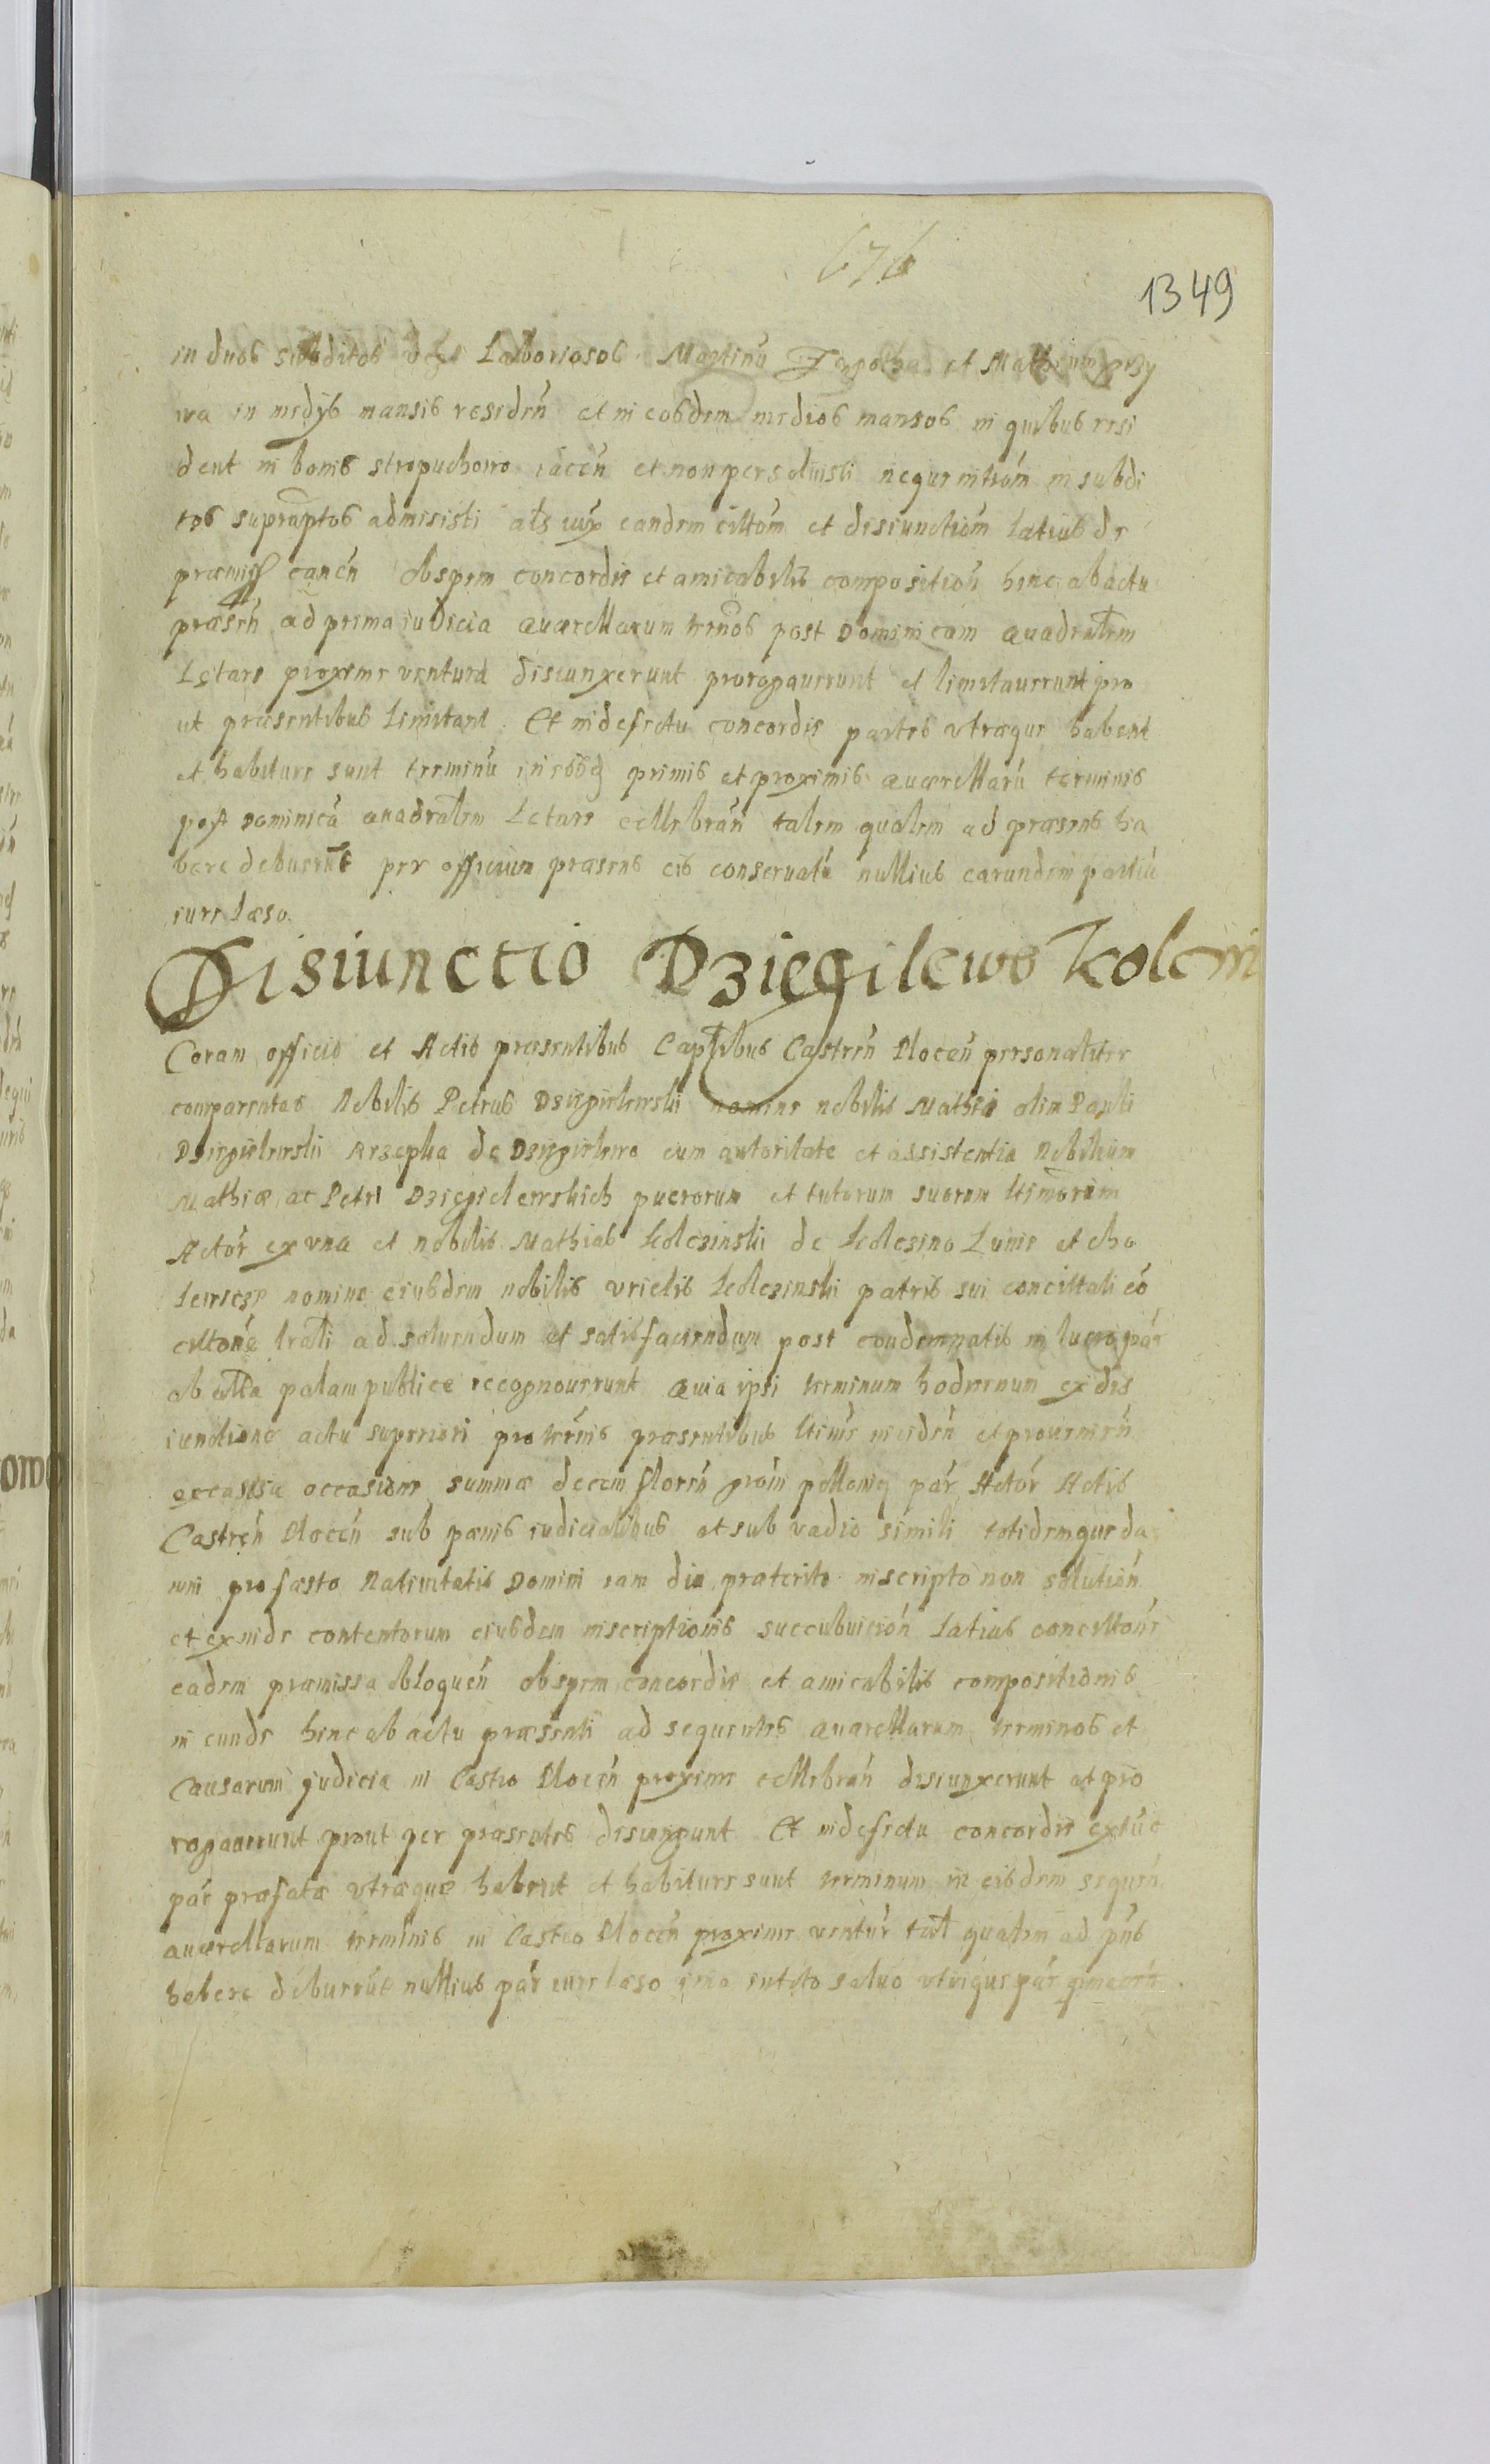 676
1349
in duos subditos Laboriosos Martinu et
in medijs mansis residen̄ et in eosdem medios mansos in quibus resi
dent in bonis stropuchowo iacen̄ et non persoluisti neque intrōm in subdi
tos suprāptos admisisti als iux eandem cittōm et disiunctiōm latius de
præmiss canen̄ ob spem concordie et amicabilis composition̄ hinc ab actu
præsen̄ ad prima iudicia quærellarum termōs post Dominicam quadralem
Lętare proxime ventura disiunxerunt prorogauerunt et limitauerunt pro
ut præsentibus limitant. Et in defectu concordie partes vtræque habent
et habiture sunt terminū in primis et proximis quærellarū terminis
post Dominicā quadralem Letare cellebran̄ talem qualem ad præsens ha
bere debuerūt per officium præsens eis conseruatū nullius earundem partiū
iure læso.
Disiunctio Dziegilewo kolczin
Coram officio et Actis præsentibus Captlibus Castren̄ Plocen̄ personaliter
comparentes Nobilis Petrus Dzięgielewski nomine nobilis Mathiæ olim Pauli
Dzięgielewskii de Dzięgielewo cum autoritate et assistentia Nobilium
Mathiæ ac Petri Dziegielewskich puerorum et tutorum suorum ltimorum
Actor ex vna et nobilis Mathias kolczinskii de kolczino Lunie et cho
nomine eiusdem nobilis vrielis kolczinskii patris sui concittati eō
cittone trāti ad soluendum et satisfaciendum post condemnatis in lucro par
ab altā palam publice recognouerunt Quia ipsi terminum hodiernum ex dis
iunctione actu superiori pro termis præsentibus ltime inciden̄ et prouenien̄
occasione summæ decem floren̄ polloniq̨ par Actor Actis
Castren̄ Plocen̄ sub pœnis iudicialibus et sub vadio simili totidemque da
mni pro fæsto Natiuitatis Domini iam diu præterito inscripto non solution̄
et exinde contentorum eiusdem inscriptionis succubuicion̄ latius concittone
eadem præmissa obloquen̄ ob spem concordie et amicabilis compositionis
in eunde hinc ab actu præsenti ad sequentes quærellarum terminos et
Causarum judicia in Castro Plocen̄ proxime cellebran̄ disiunxerunt at pro
rogauerunt prout per præsentes disiungunt Et in defectu concordie extūc
par præfatæ vtræque habent et habiture sunt terminum in eisdem sequen̄
quærellarum terminis in Castro Plocen̄ proxime ventur tal qualem ad pn̄s
habere debuerūt nullius par iure læso salvo vtriuque par